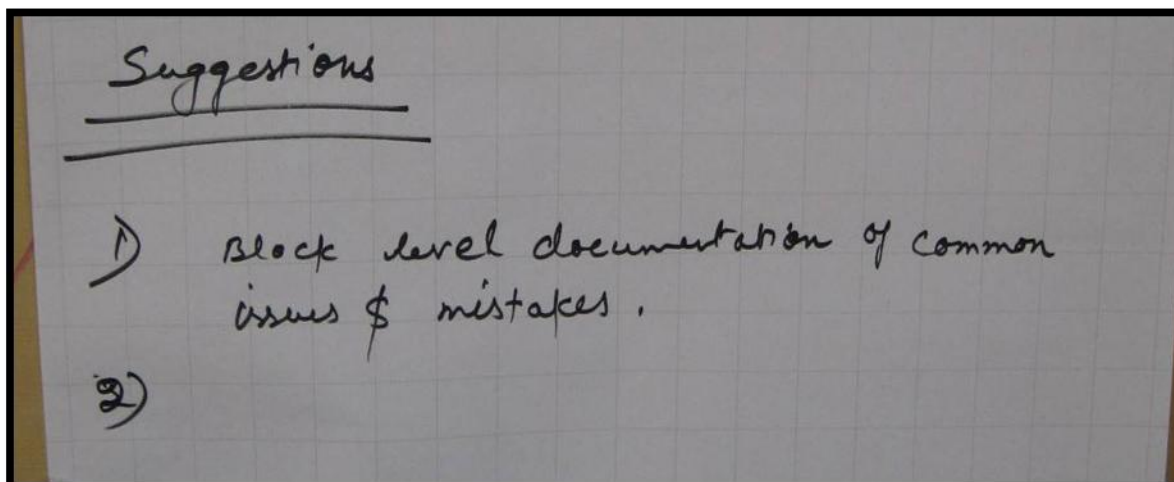 Suggestions
1) Block level documentation of common
issues & mistakes.
2)